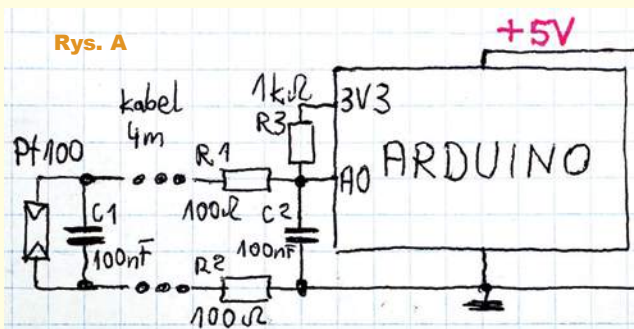 Rys. A
+5V
kabel
4m
1kΩ
R3
3V3
Pt100
R1
100Ω
A0
ARDUINO
C1
100nF
C2
100nF
R2
100Ω